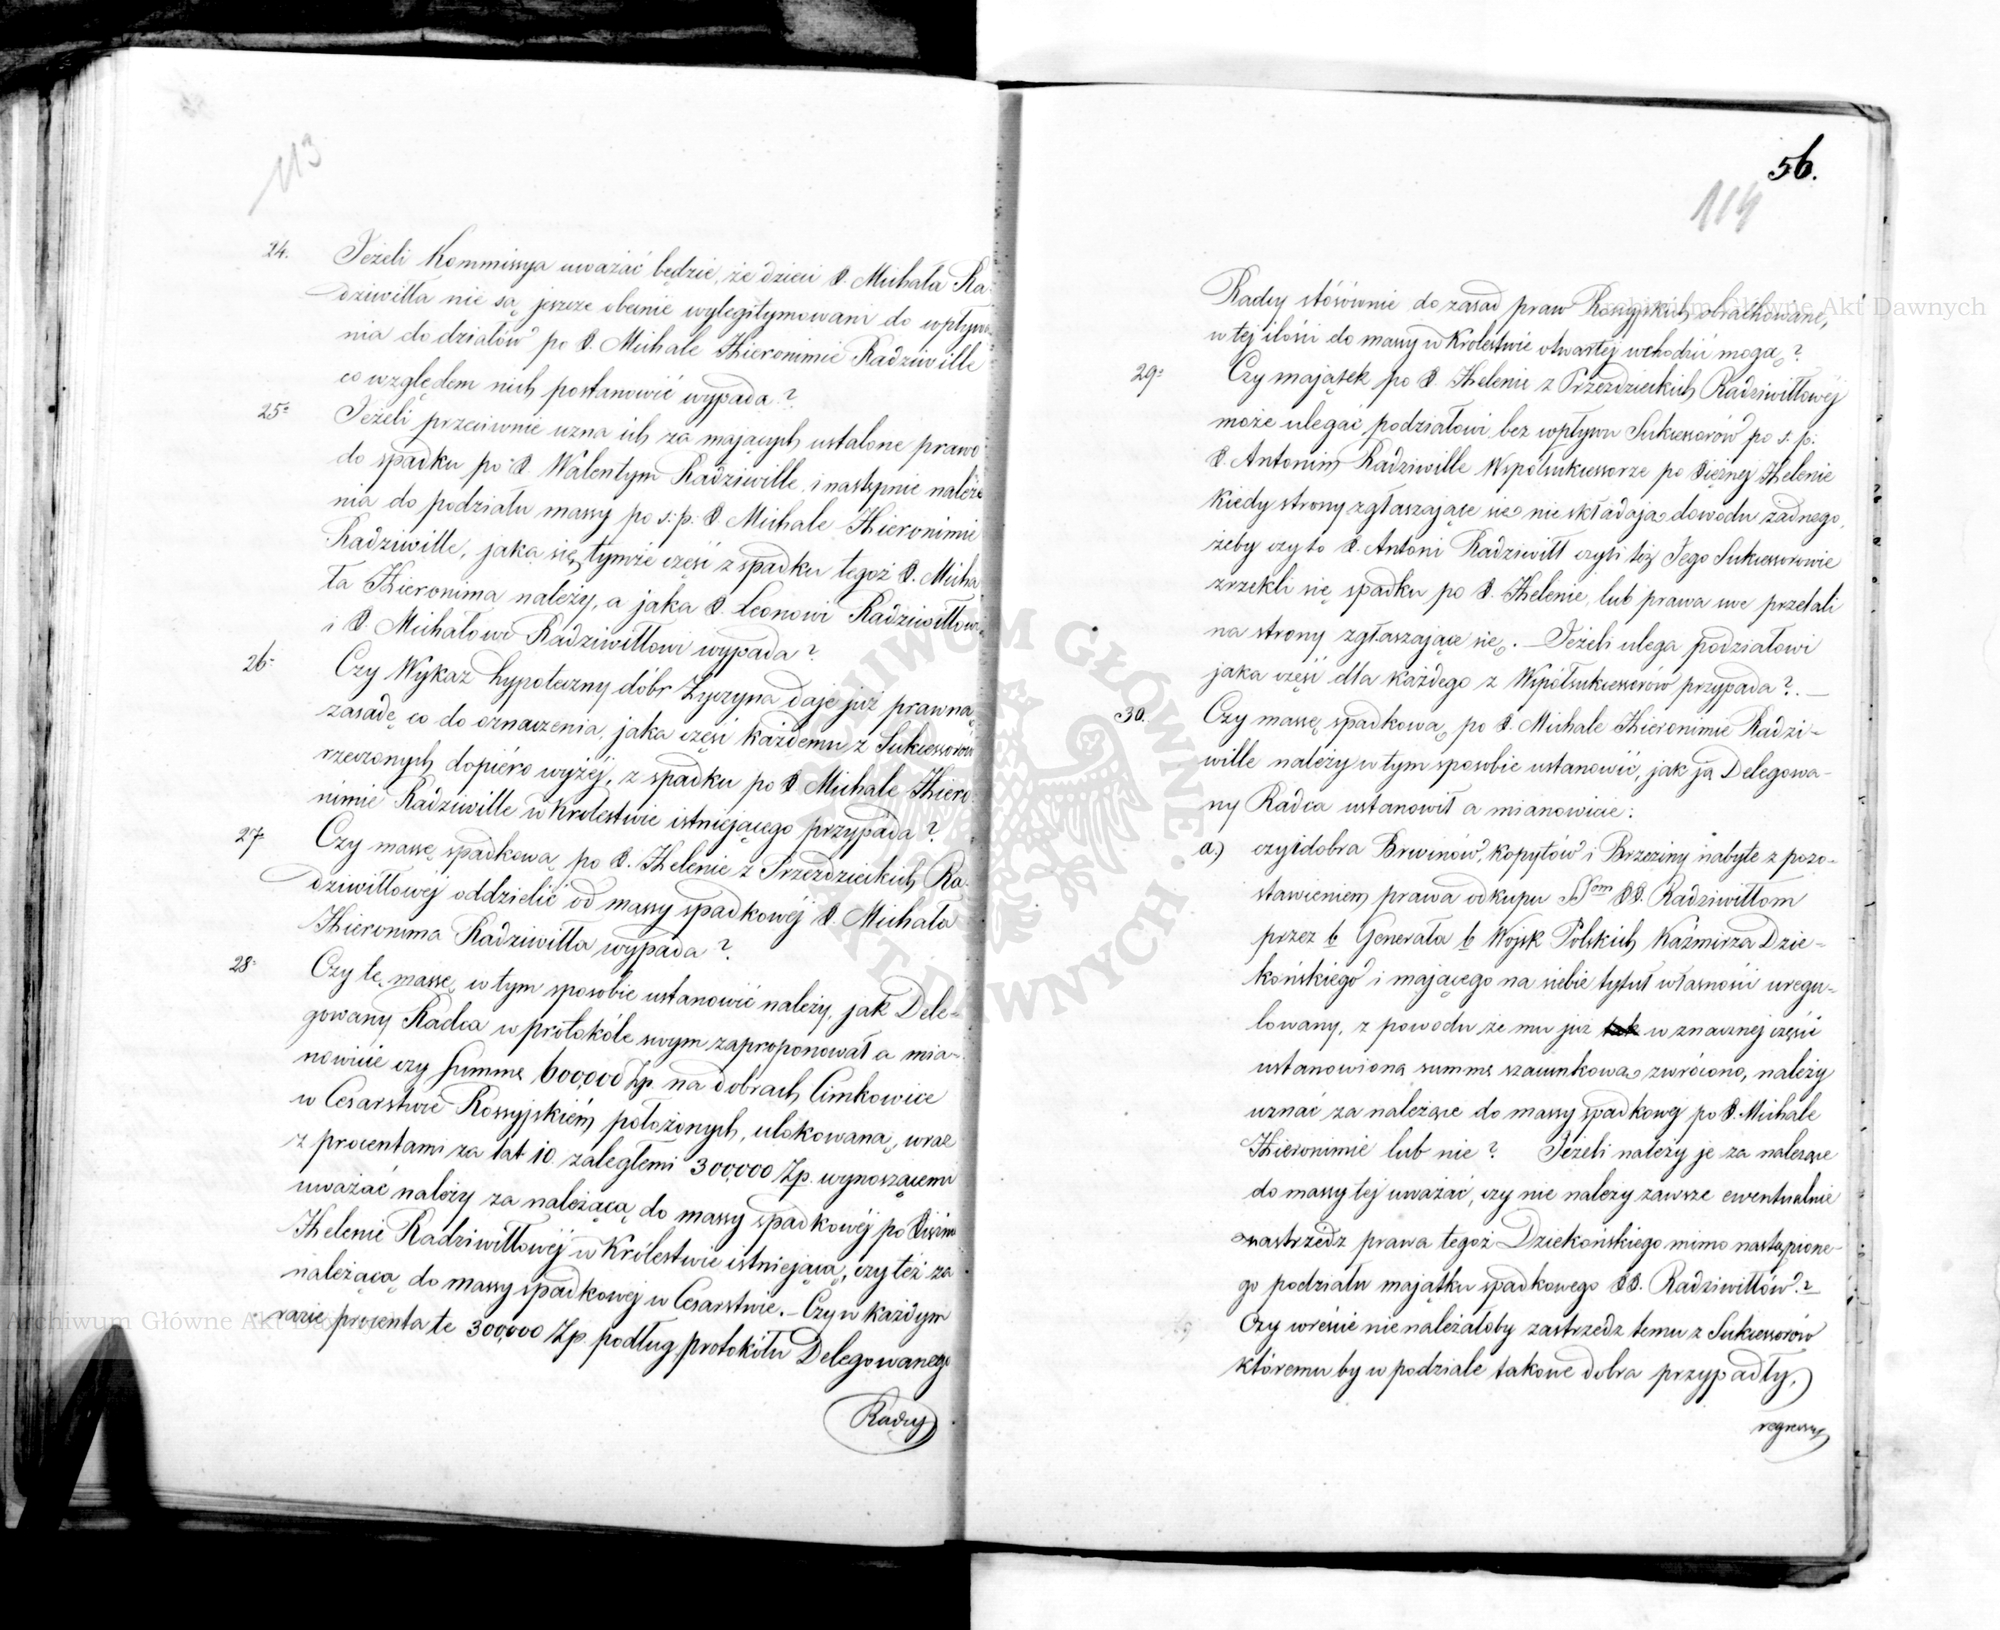 113
24. Jeżeli Kommissya uważać będzie, że dzieci X. Michała Ra-
dziwiłła nie są jeszcze obecnie wylegitymowani do wpływa-
nia do działów po X. Michale Hieronimie Radziwille
co względem nich postanowić wypada?
25. Jeżeli przeciwnie uzna ich za mających ustalone prawo
do spadku po X. Walentym Radziwille, i następnie należe-
nia do podziału massy po ś: p: X Michale Hieronimie
Radziwille, jaka się tymże część z spadku tegoż X. Micha-
ła Hieronima należy, a jaka X. Leonowi Radziwiłłowi
i X. Michałowi Radziwiłłowi wypada?
26. Czy Wykaz hypoteczny dóbr Zyczyna daje już prawną
zasadę co do oznaczenia, jaka część każdemu z Sukcessorów
rzeczonych dopiéro wyżéj, z spadku po X Michale Hiero-
nimie Radziwille w Krolestwie istniejącego przypada?
27 Czy massę spadkową po X. Helenie z Przezdzieckich Ra-
dziwiłłowej oddzielić od massy spadkowéj X. Michała
Hieronima Radziwiłła wypada?
28. Czy tę massę w tym sposobie ustanowić należy, jak Dele-
gowany Radca w protokóle swym zaproponował a mia-
nowicie czy Summę 600,000 Zp. na dobrach Cimkowice
w Cesarstwie Rossyjskiém położonych, ulokowaną, wraz
z procentami za lat 10. zaległemi 300,000 Zp. wynoszącemi
uważać należy za należącą do massy spadkowéj po Xiężnie
Helenie Radziwiłłowéj w Królestwie istniejącą, czy też za
należącą do massy spadkowej w Cesarstwie. – Czy w każdym
razie procenta te 300,000 Zp. podług protokółu Delegowanego
Radcy
56.
114
Radcy stósównie do zasad praw Rossyjskich obrachowane,
w tej ilości do massy w Krolestwie otwartéj wchodzić mogą?
29. Czy majątek po X. Helenie z Przezdzieckich Radziwiłłowéj
może ulegać podziałowi bez wpływu Sukcessorów po ś. p:
X. Antonim Radziwille Współsukcessorze po Xiężnej Helenie
kiedy strony zgłaszające się nie składają dowodu żadnego,
żeby czy to X. Antoni Radziwiłł czyli téż Jego Sukcessorowie
zrzekli się spadku po X. Helenie, lub prawa swe przelali
na strony zgłaszające się. – Jeżeli ulega podziałowi
jaka część dla każdego z Współsukcessorów przypada?. –
30. Czy massę spadkową po X. Michale Hieronimie Radzi-
wille należy w tym sposobie ustanowić, jak ją Delegowa-
ny Radca ustanowił a mianowicie:
a.) czyli dobra Brwinów, Kopytów i Brzeziny nabyte z pozo-
stawieniem prawa odkupu XX. Radziwiłłom
przez b Generała b Wojsk Polskich Kaźmirza Dzie-
końskiego i mającego na siebie tytuł własności uregu-
lowany, z powodu że mu już tak w znacznej części
ustanowioną summę szacunkową zwrócono, należy
uznać za należące do massy spadkowej po X. Michale
Hieronimie lub nie? Jeżeli należy je za należące
do massy tej uważać, czy nie należy zawsze ewentualnie
zastrzedz prawa tegoż Dziekońskiego mimo nastąpione-
go podziału majątku spadkowego XX. Radziwiłłów?
Czy wreście nie należałoby zastrzedz temu z Sukcessorów
któremu by w podziale takowe dobra przypadły,
regressu